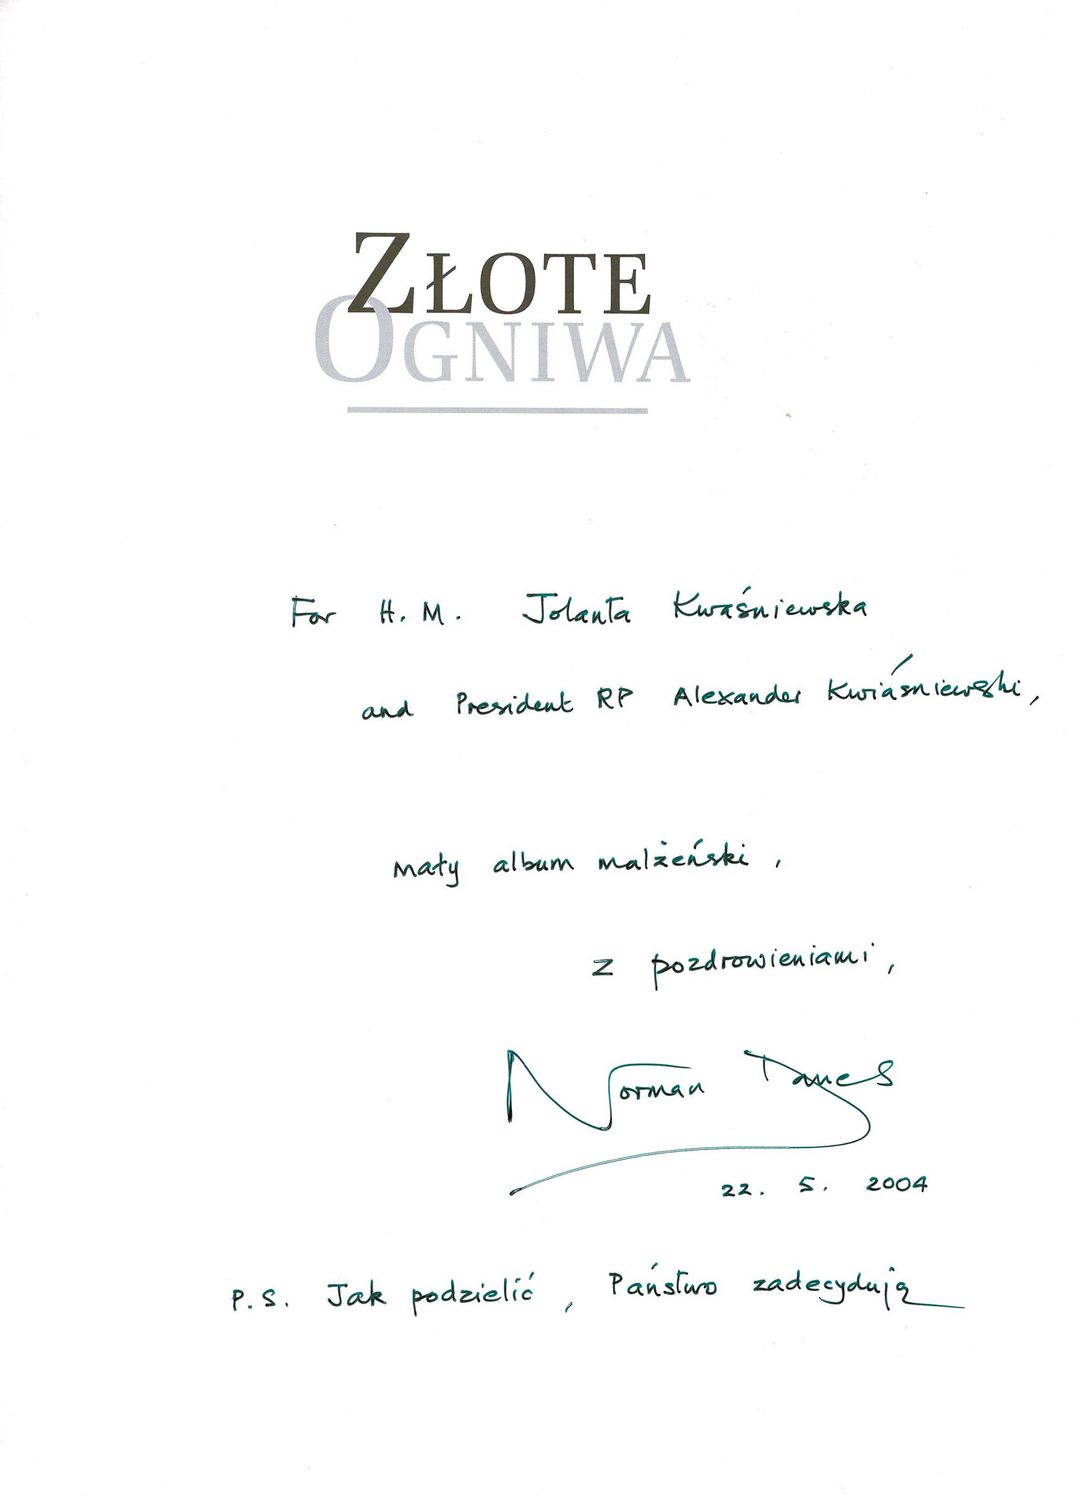 ZŁOTE
OGNIWA
For H. M. Jolanta Kwaśniewska
and President RP Alexander Kwiaśniewski,
mały album malżeński,
z pozdrowieniami,
Norman Davies
22. 5. 2004
P.S. Jak podzielić, Państwo zadecydują